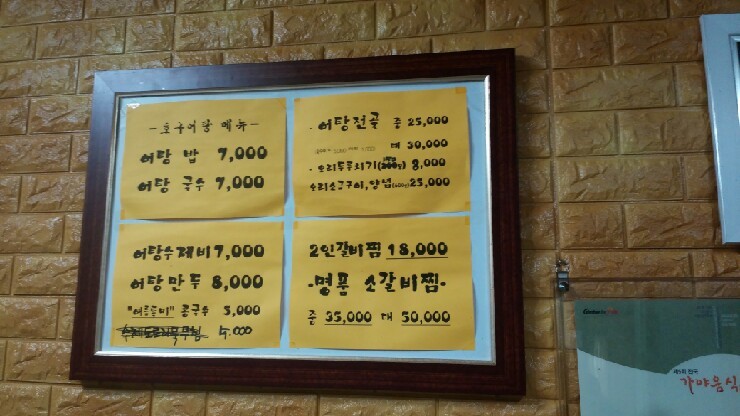 -호구어탕 메뉴-
어탕 밥 7,000
어탕 국수 7,000
어탕전골 중 25,000
대 30,000
오리소금구이, 양념 25,000
어탕수제비 7,000
어탕만두 8,000
콩국수 5,000
5,000
2인갈비찜 18,000
명품 소갈비찜
중 35,000 대 50,000
가야음식